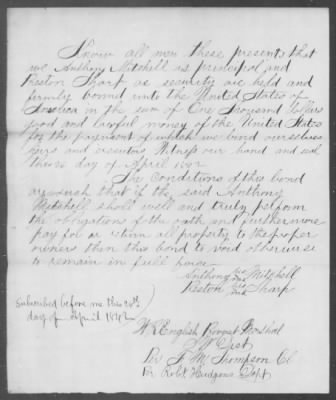 Know all men these present that
we Anthony Mitchell as principal and
Reston Sharp as security are held and
firmly bound unto the United States of
America in the sum of One Thousand dollars
good and lawful money of the United States
for the payment of which we bond ourselves
heirs and executors Witness our hand and seal
this 20 day of April 1862
The Conditions of this bond
are such that if the said Anthony
Mitchell shall well and truly perform
the obligations of the oath and furthermore
pay for or return all property to the proper
owners then this bond to void otherwise
to remain in full force
Anthony his mark Mitchell
Reston his mark Sharp
Subscribed before me this 20th
day of April 1862
W R English Provost Marshal
Dist
Per J M Thompson Cl
Per Robt Hudgens Dept